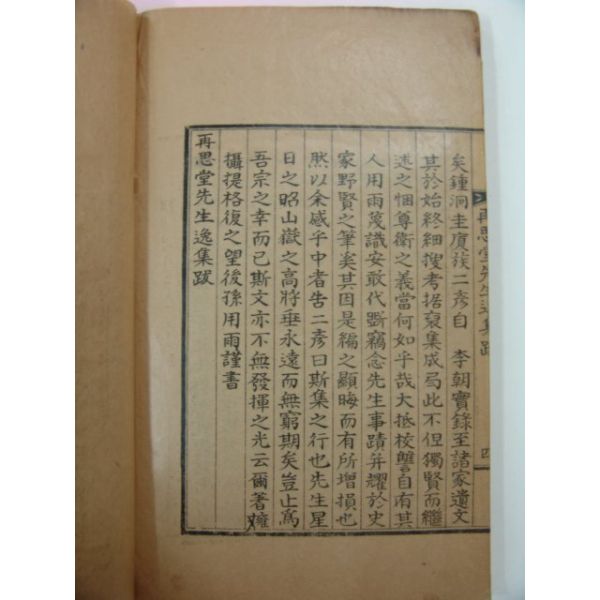 矣鍾洞圭賡葰二彥自　李朝實錄至諸家遺文
其於始終細搜考据裒集成局此不但獨賢而繼
述之悃尊衛之義當何如乎哉大抵校讐自有其
人用雨蔑識安敢代斲竊念先生事蹟幷耀於史
家野賢之筆矣其因是編之顯晦而有所增損也
然以余感乎中者告二彥曰斯集之行也先生星
日之昭山嶽之高將垂永遠而無窮期矣豈止爲
吾宗之幸而已斯文亦不無發揮之光云爾著雍
攝提格復之望後孫用雨謹書
再思堂先生逸集跋
再思堂先生逸集跋
四